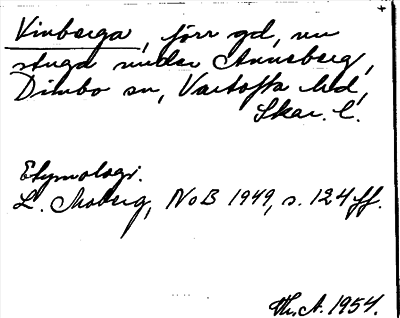 Vinberga, förr gd, nu
stuga under Annaberg,
Dimbo sn, Vartofta hd,
Skar. l.
Etymologi.
L. Moberg, NoB 1949, s. 124 ff.
A. 1954.